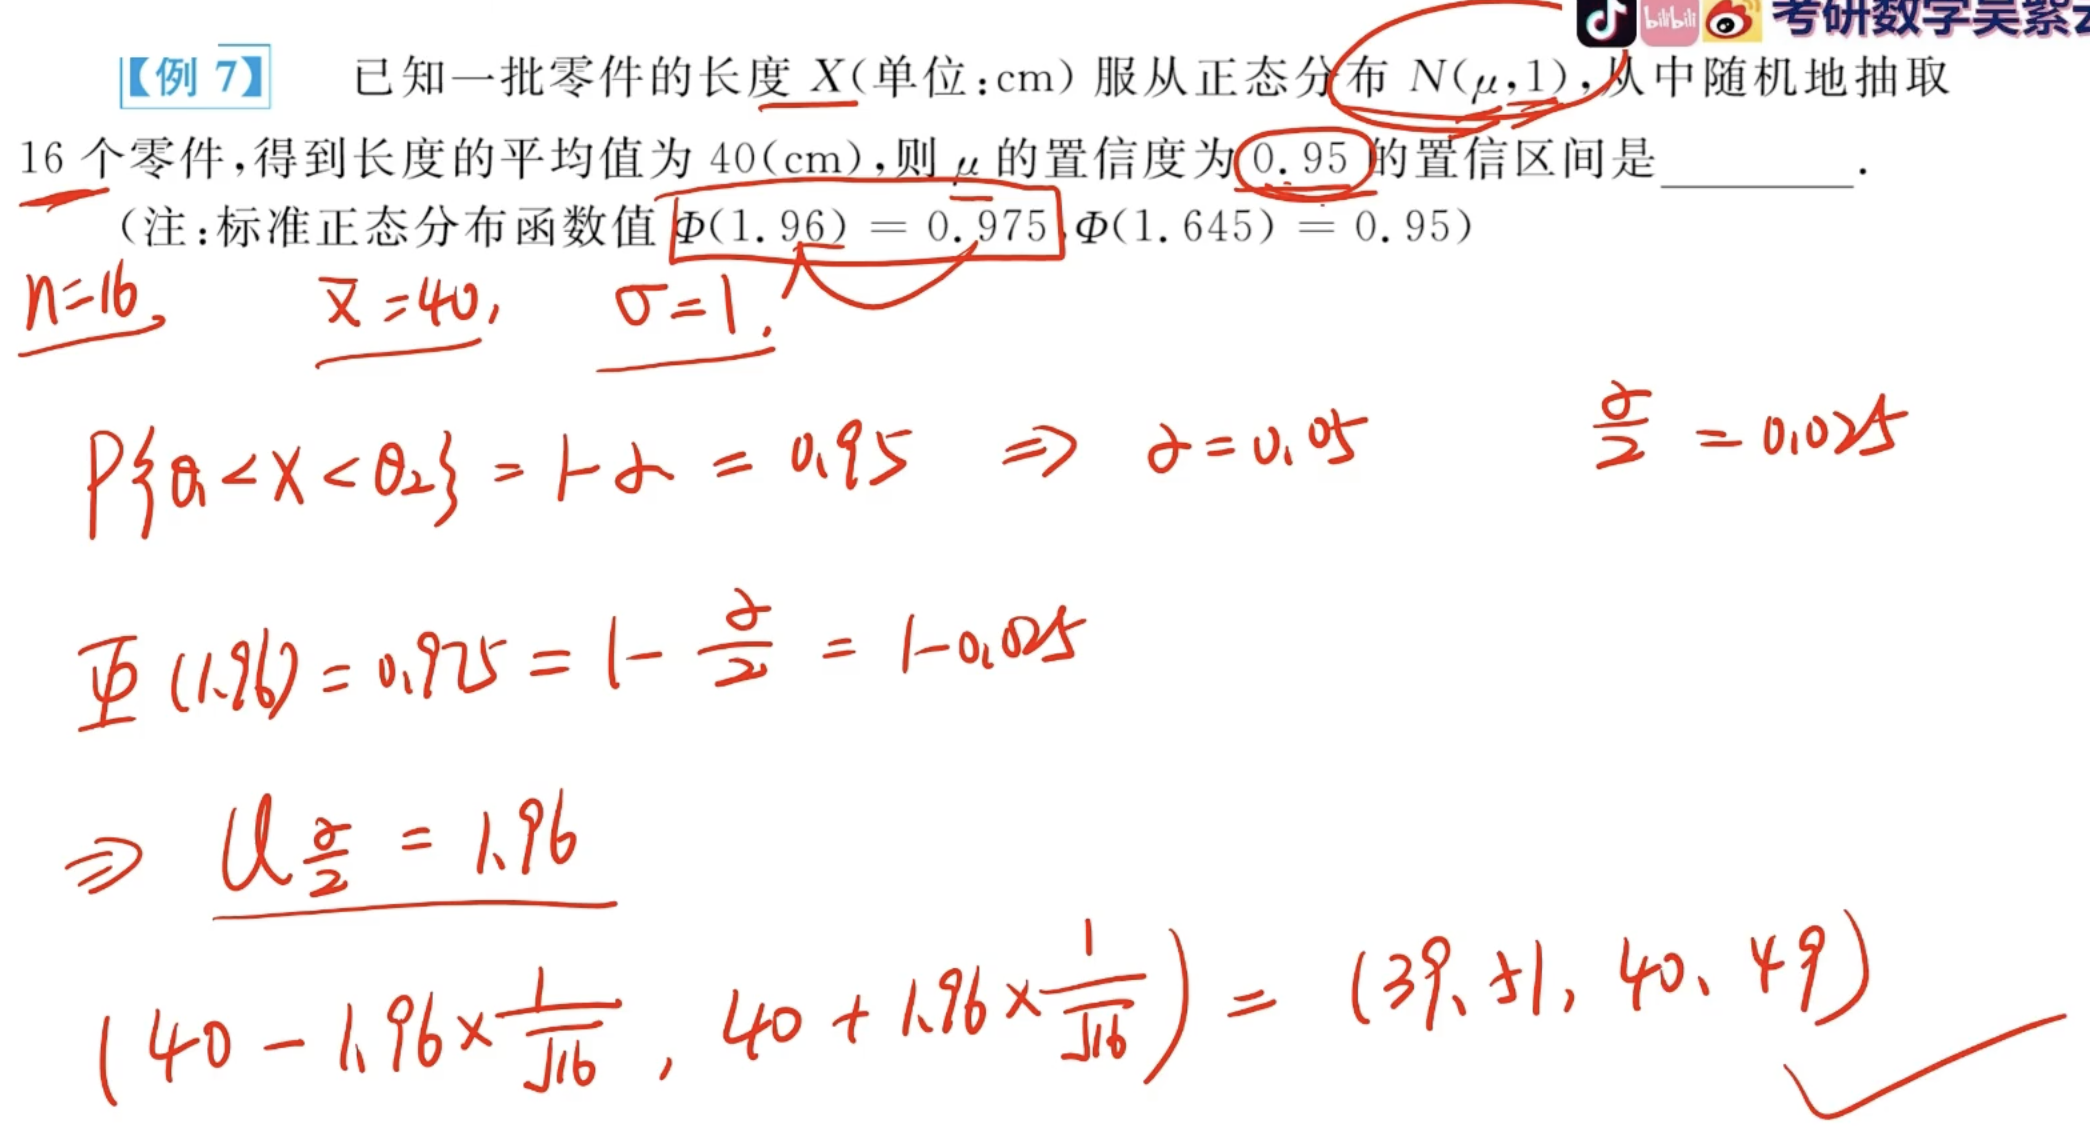 考研数学吴紫
【例 7】 已知一批零件的长度 X(单位:cm) 服从正态分布 N(μ,1),从中随机地抽取
16 个零件,得到长度的平均值为 40(cm),则 μ 的置信度为 0.95 的置信区间是________.
(注:标准正态分布函数值 Φ(1.96) = 0.975,Φ(1.645) = 0.95)
n=16, x̄=40, σ=1.
P{θ₁<X<θ₂} = 1-α = 0.95 ⇒ α=0.05 α/2 = 0.025
Φ(1.96) = 0.975 = 1 - α/2 = 1-0.025
⇒ U_{α/2} = 1.96
(40 - 1.96×1/√16, 40 + 1.96×1/√16) = (39.51, 40.49)